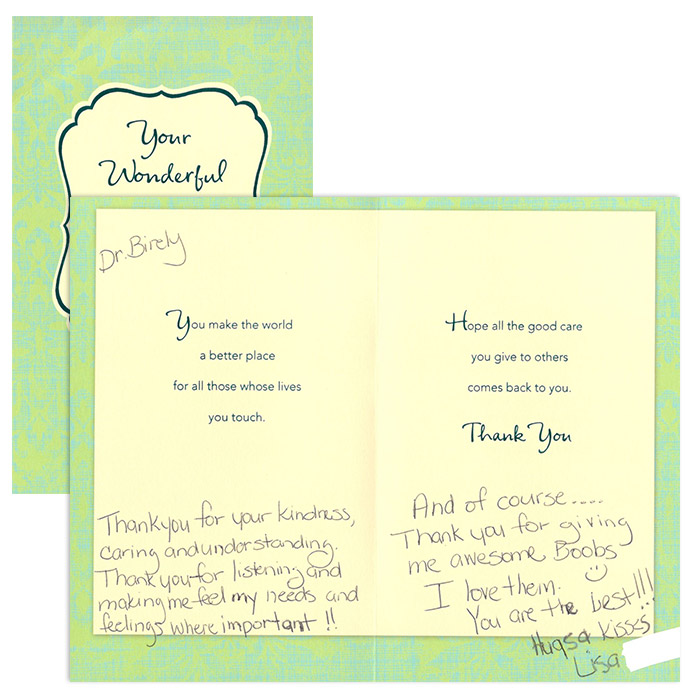 Your
Wonderful
Dr. Birely
You make the world
a better place
for all those whose lives
you touch.
Thankyou for your kindness,
caring and understanding.
Thankyou for listening and
making me feel my needs and
feelings where important !!
Hope all the good care
you give to others
comes back to you.
Thank You
And of course.....
Thank you for giving
me awesome Boobs
I love them.
You are the best!!!
Hugs & Kisses
Lisa